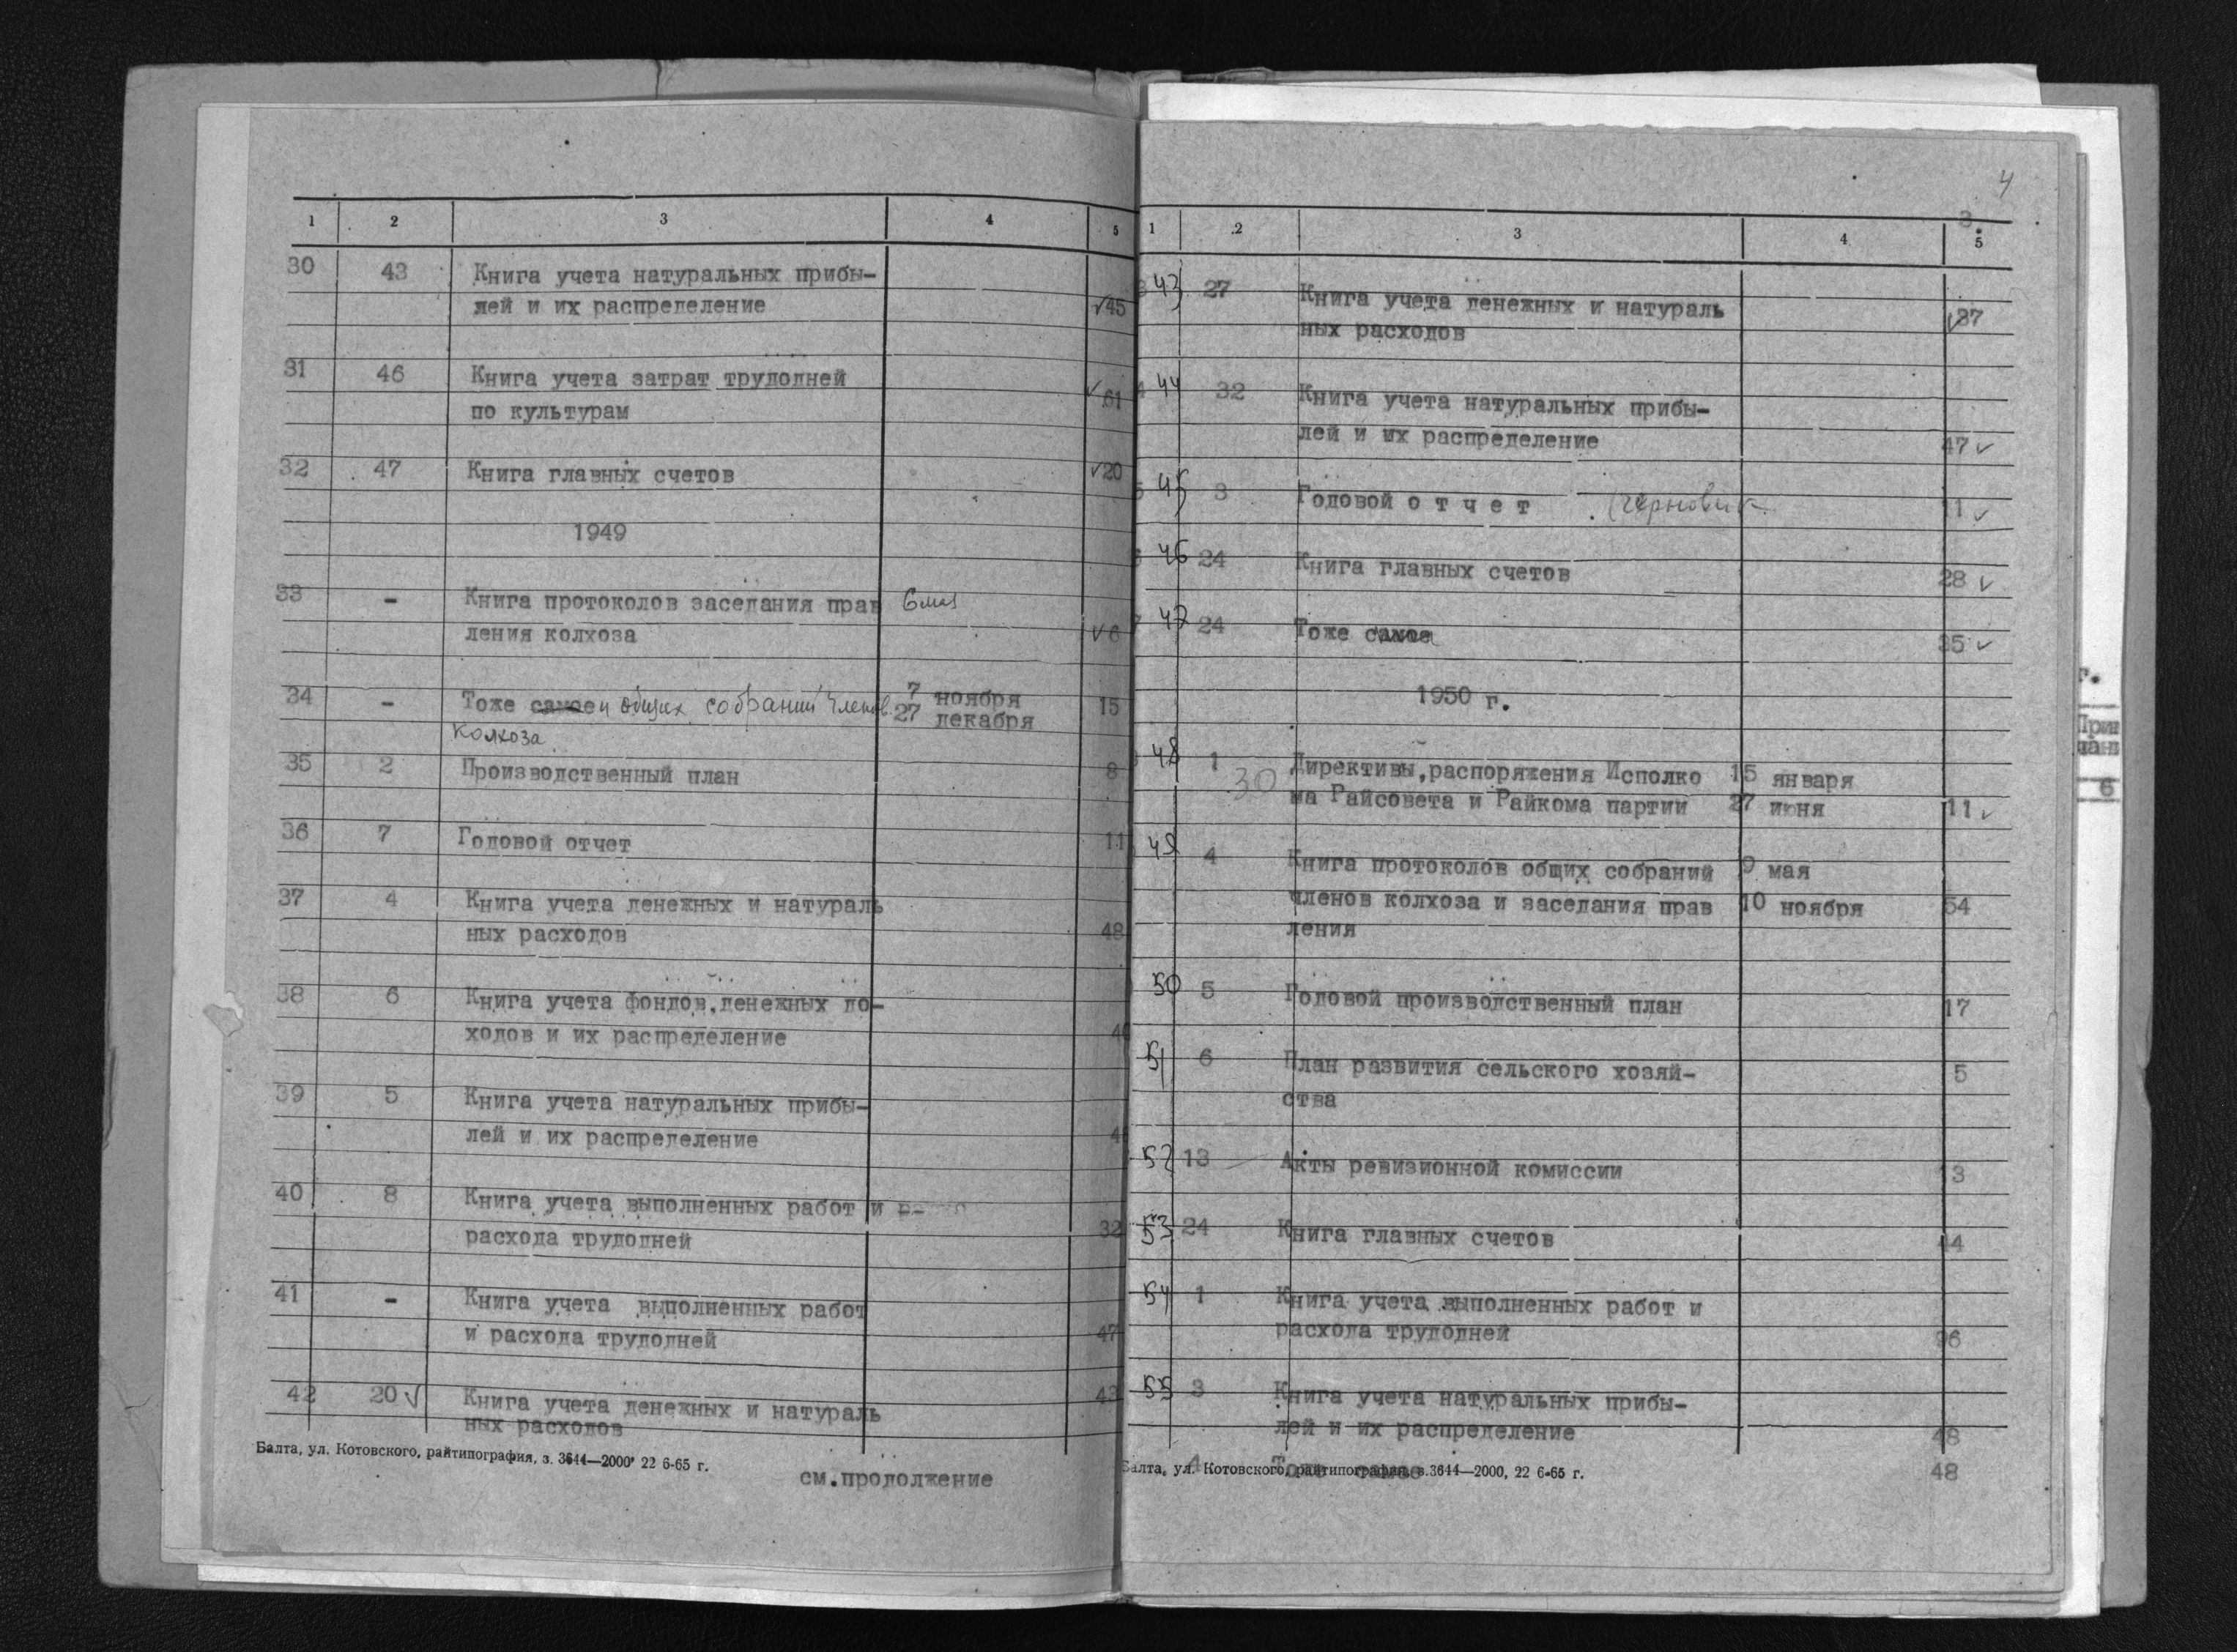 1 2 3 4 5
30 43 Книга учета натуральных прибы-
лей и их распределение ✓45
31 46 Книга учета затрат трудодней
по культурам ✓61
32 47 Книга главных счетов ✓20
1949
33 - Книга протоколов заседания прав 6 мая
ления колхоза ✓6
34 - Тоже самое и общих собраний членов 7 ноября 15
колхоза 27 декабря
35 2 Производственный план 8
36 7 Годовой отчет 11
37 4 Книга учета денежных и натураль
ных расходов 48
38 6 Книга учета фондов,денежных до-
ходов и их распределение
39 5 Книга учета натуральных прибы-
лей и их распределение
40 8 Книга учета выполненных работ и
расхода трудодней 32
41 - Книга учета выполненных работ
и расхода трудодней 47
42 20 ✓ Книга учета денежных и натураль 43
ных расходов
Балта, ул. Котовского, райтипография, з. 3644—2000, 22 6-65 г.
см.продолжение
4
3.
1 2 3 4 5
43 27 Книга учета денежных и натураль
ных расходов ✓37
44 32 Книга учета натуральных прибы-
лей и их распределение 47 ✓
45 3 Годовой о т ч е т (черновик 11 ✓
46 24 Книга главных счетов 28 ✓
47 24 Тоже 35 ✓
1950 г.
48 1 Директивы,распоряжения Исполко 15 января
30 ма Райсовета и Райкома партии 27 июня 11 ✓
49 4 Книга протоколов общих собраний 9 мая
членов колхоза и заседания прав 10 ноября 54
ления
50 5 Годовой производственный план 17
51 6 План развития сельского хозяй- 5
ства
52 13 Акты ревизионной комиссии 13
53 24 Книга главных счетов 44
54 1 Книга учета выполненных работ и
расхода трудодней 96
55 3 Книга учета натуральных прибы-
лей и их распределение 48
4 Тоже самое 48
Балта, ул. Котовского, райтипография, з.3644—2000, 22 6-65 г.
г.
Прим
чани
6